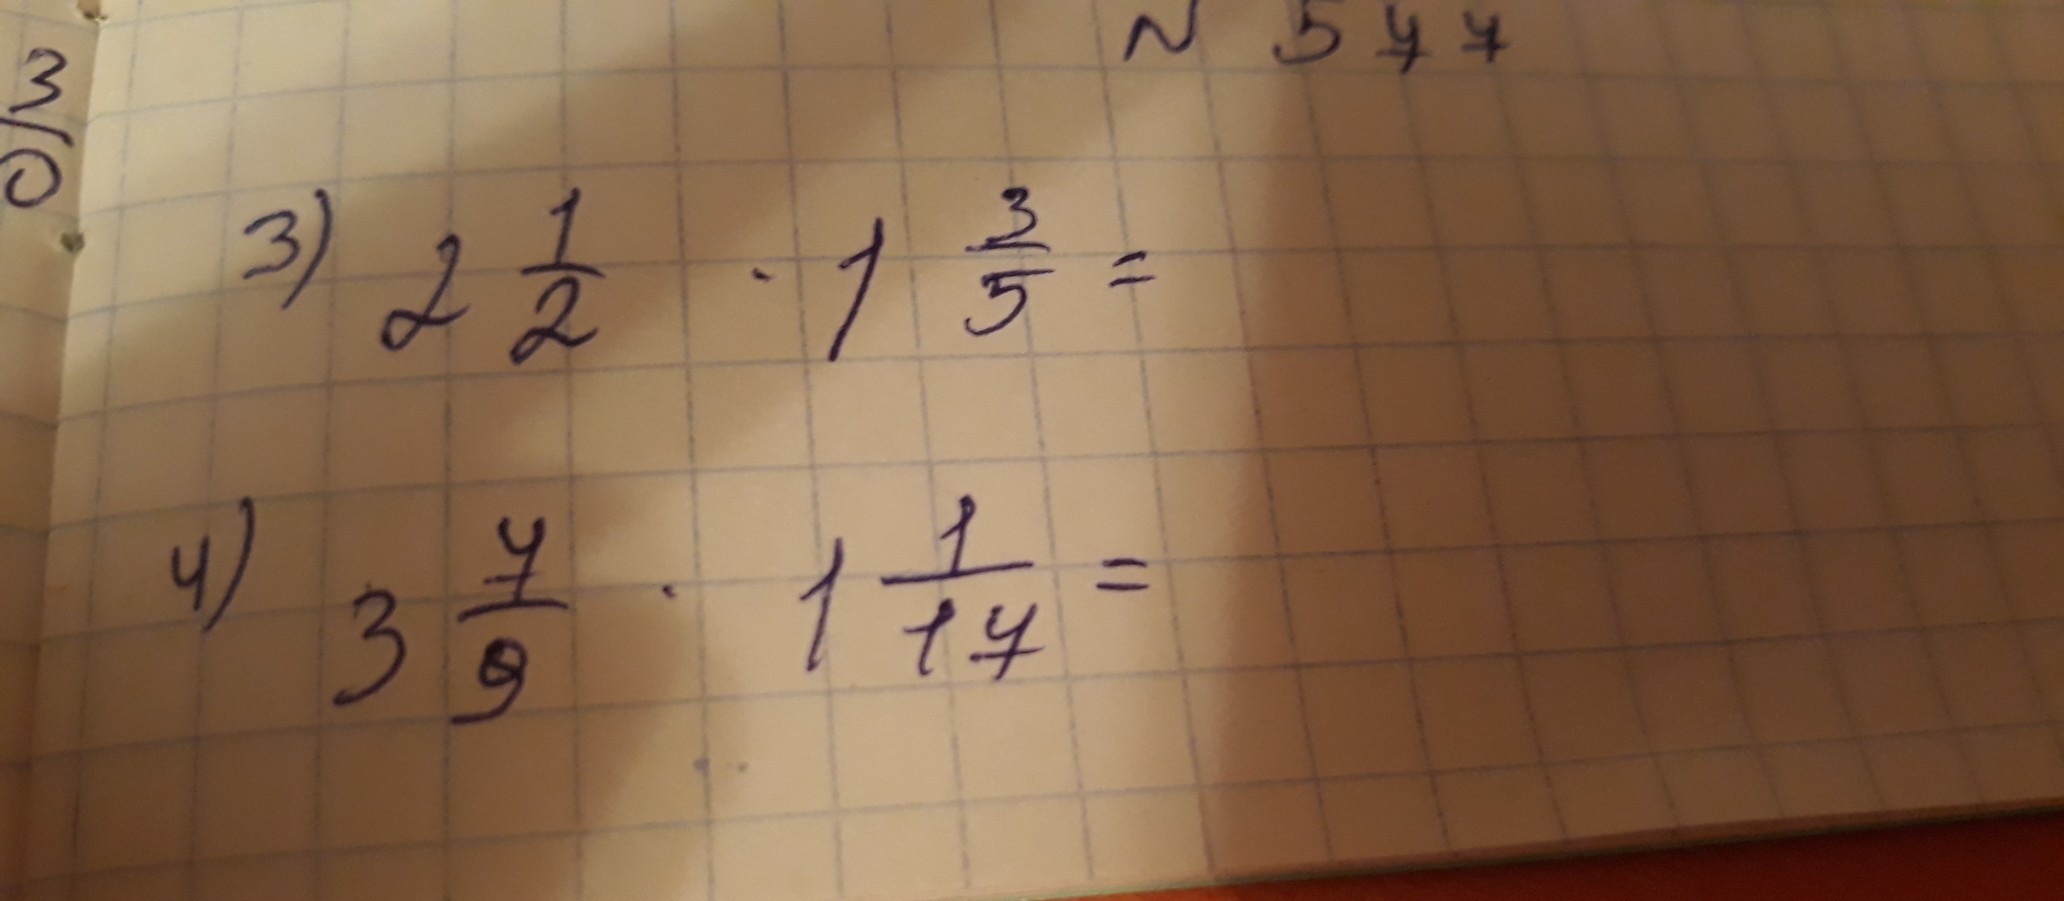 N 577
3
0
3) 2 1/2 · 1 3/5 =
4) 3 7/9 · 1 1/17 =